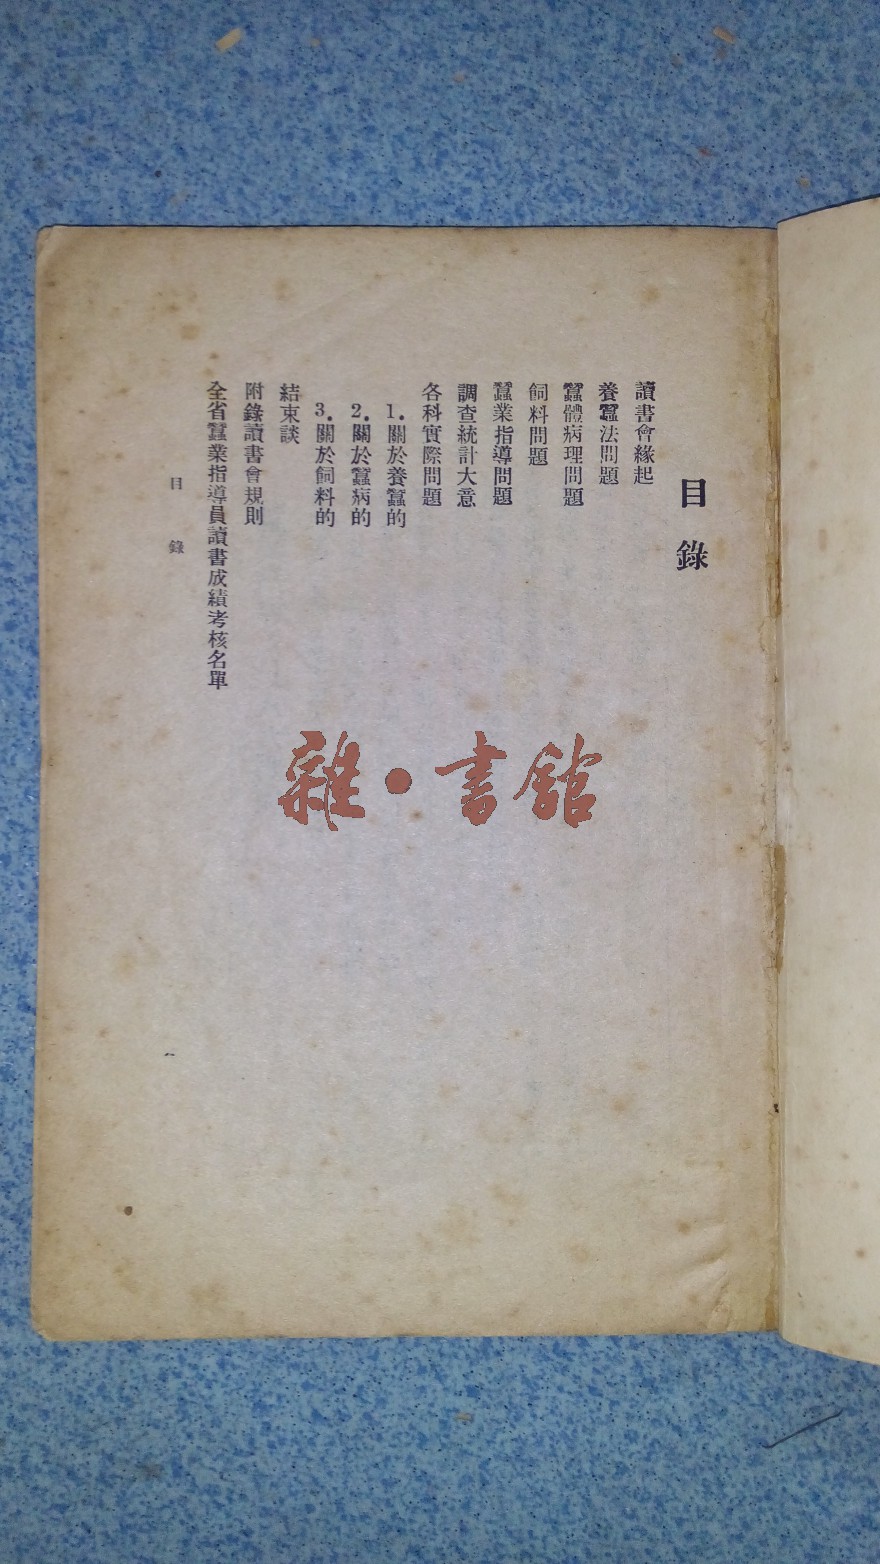 目錄
讀書會緣起
養蠶法問題
蠶體病理問題
飼料問題
蠶業指導問題
調查統計大意
各科實際問題
1.關於養蠶的
2.關於蠶病的
3.關於飼料的
結束談
附錄讀書會規則
全省蠶業指導員讀書成績考核名單
目錄
雜·書館